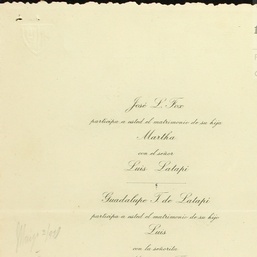 José L. Fox
participa a usted el matrimonio de su hija
Martha
con el señor
Luis Latapí
Guadalupe T. de Latapí
participa a usted el matrimonio de su hijo
Luis
con la señorita